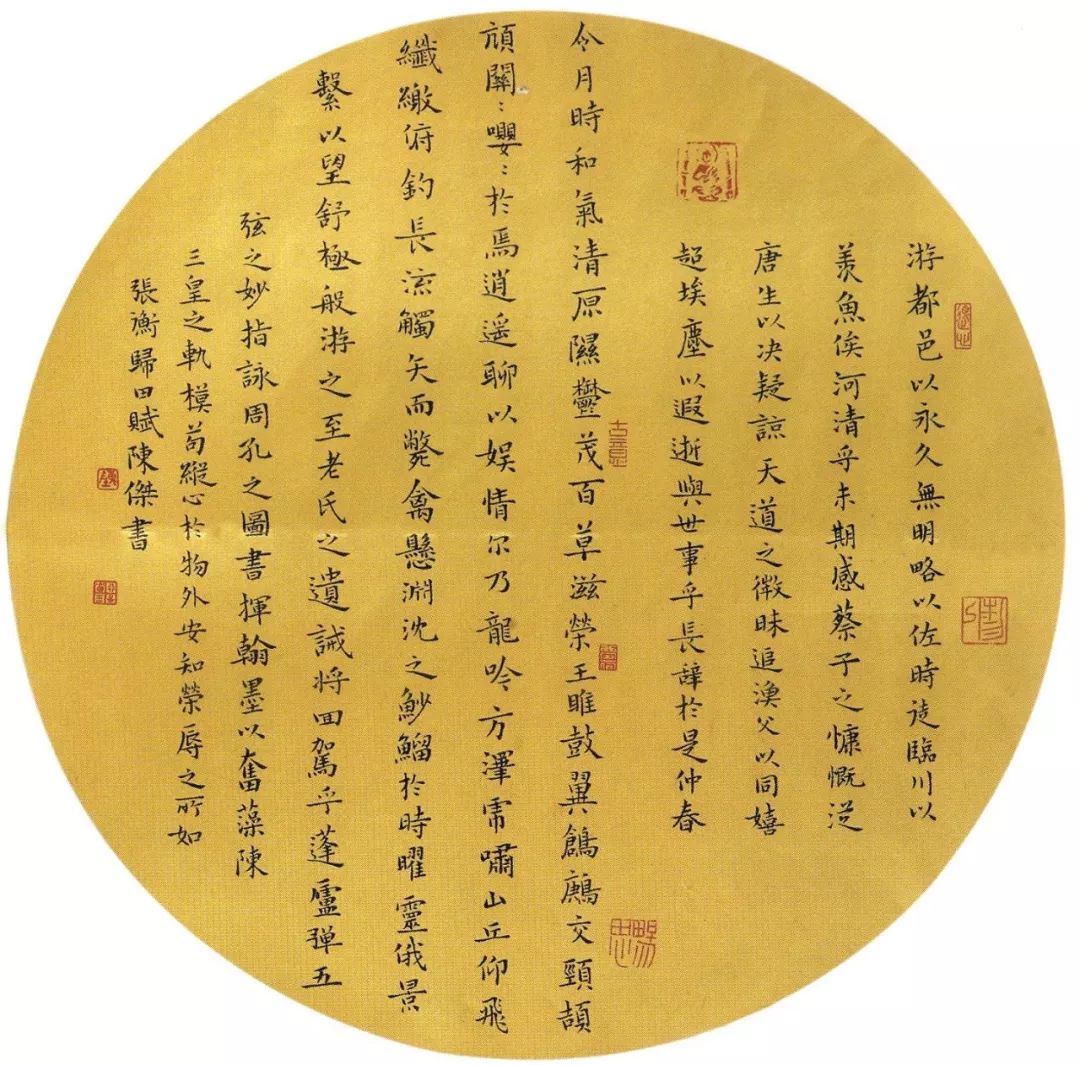 游都邑以永久無明略以佐時徒臨川以
羨魚俟河清乎未期感蔡子之慷慨從
唐生以决疑諒天道之微昧追漁父以同嬉
超埃塵以遐逝與世事乎長辭於是仲春
令月時和氣清原隰鬱茂百草滋榮王雎鼓翼鶬鶊交頸頡
頏關〻嚶〻於焉逍遥聊以娱情尔乃龍吟方澤虎嘯山丘仰飛
纖繳俯釣長流觸矢而斃禽懸淵沈之魦鰡於時曜靈俄景
繫以望舒極般游之至老氏之遺誡將回駕乎蓬廬彈五
弦之妙指詠周孔之圖書揮翰墨以奮藻陳
三皇之軌模苟縱心於物外安知榮辱之所如
張衡歸田賦陳傑書